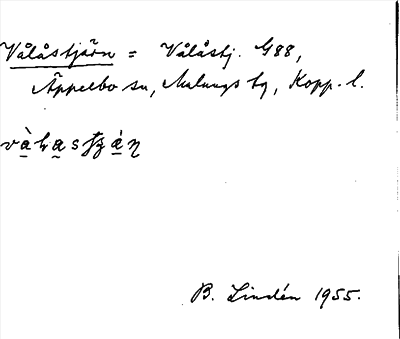 Vålåstjärn = Vålåstj. G88,
Äppelbo sn, Malungs tg, Kopp. l.
B. Lindén 1955.